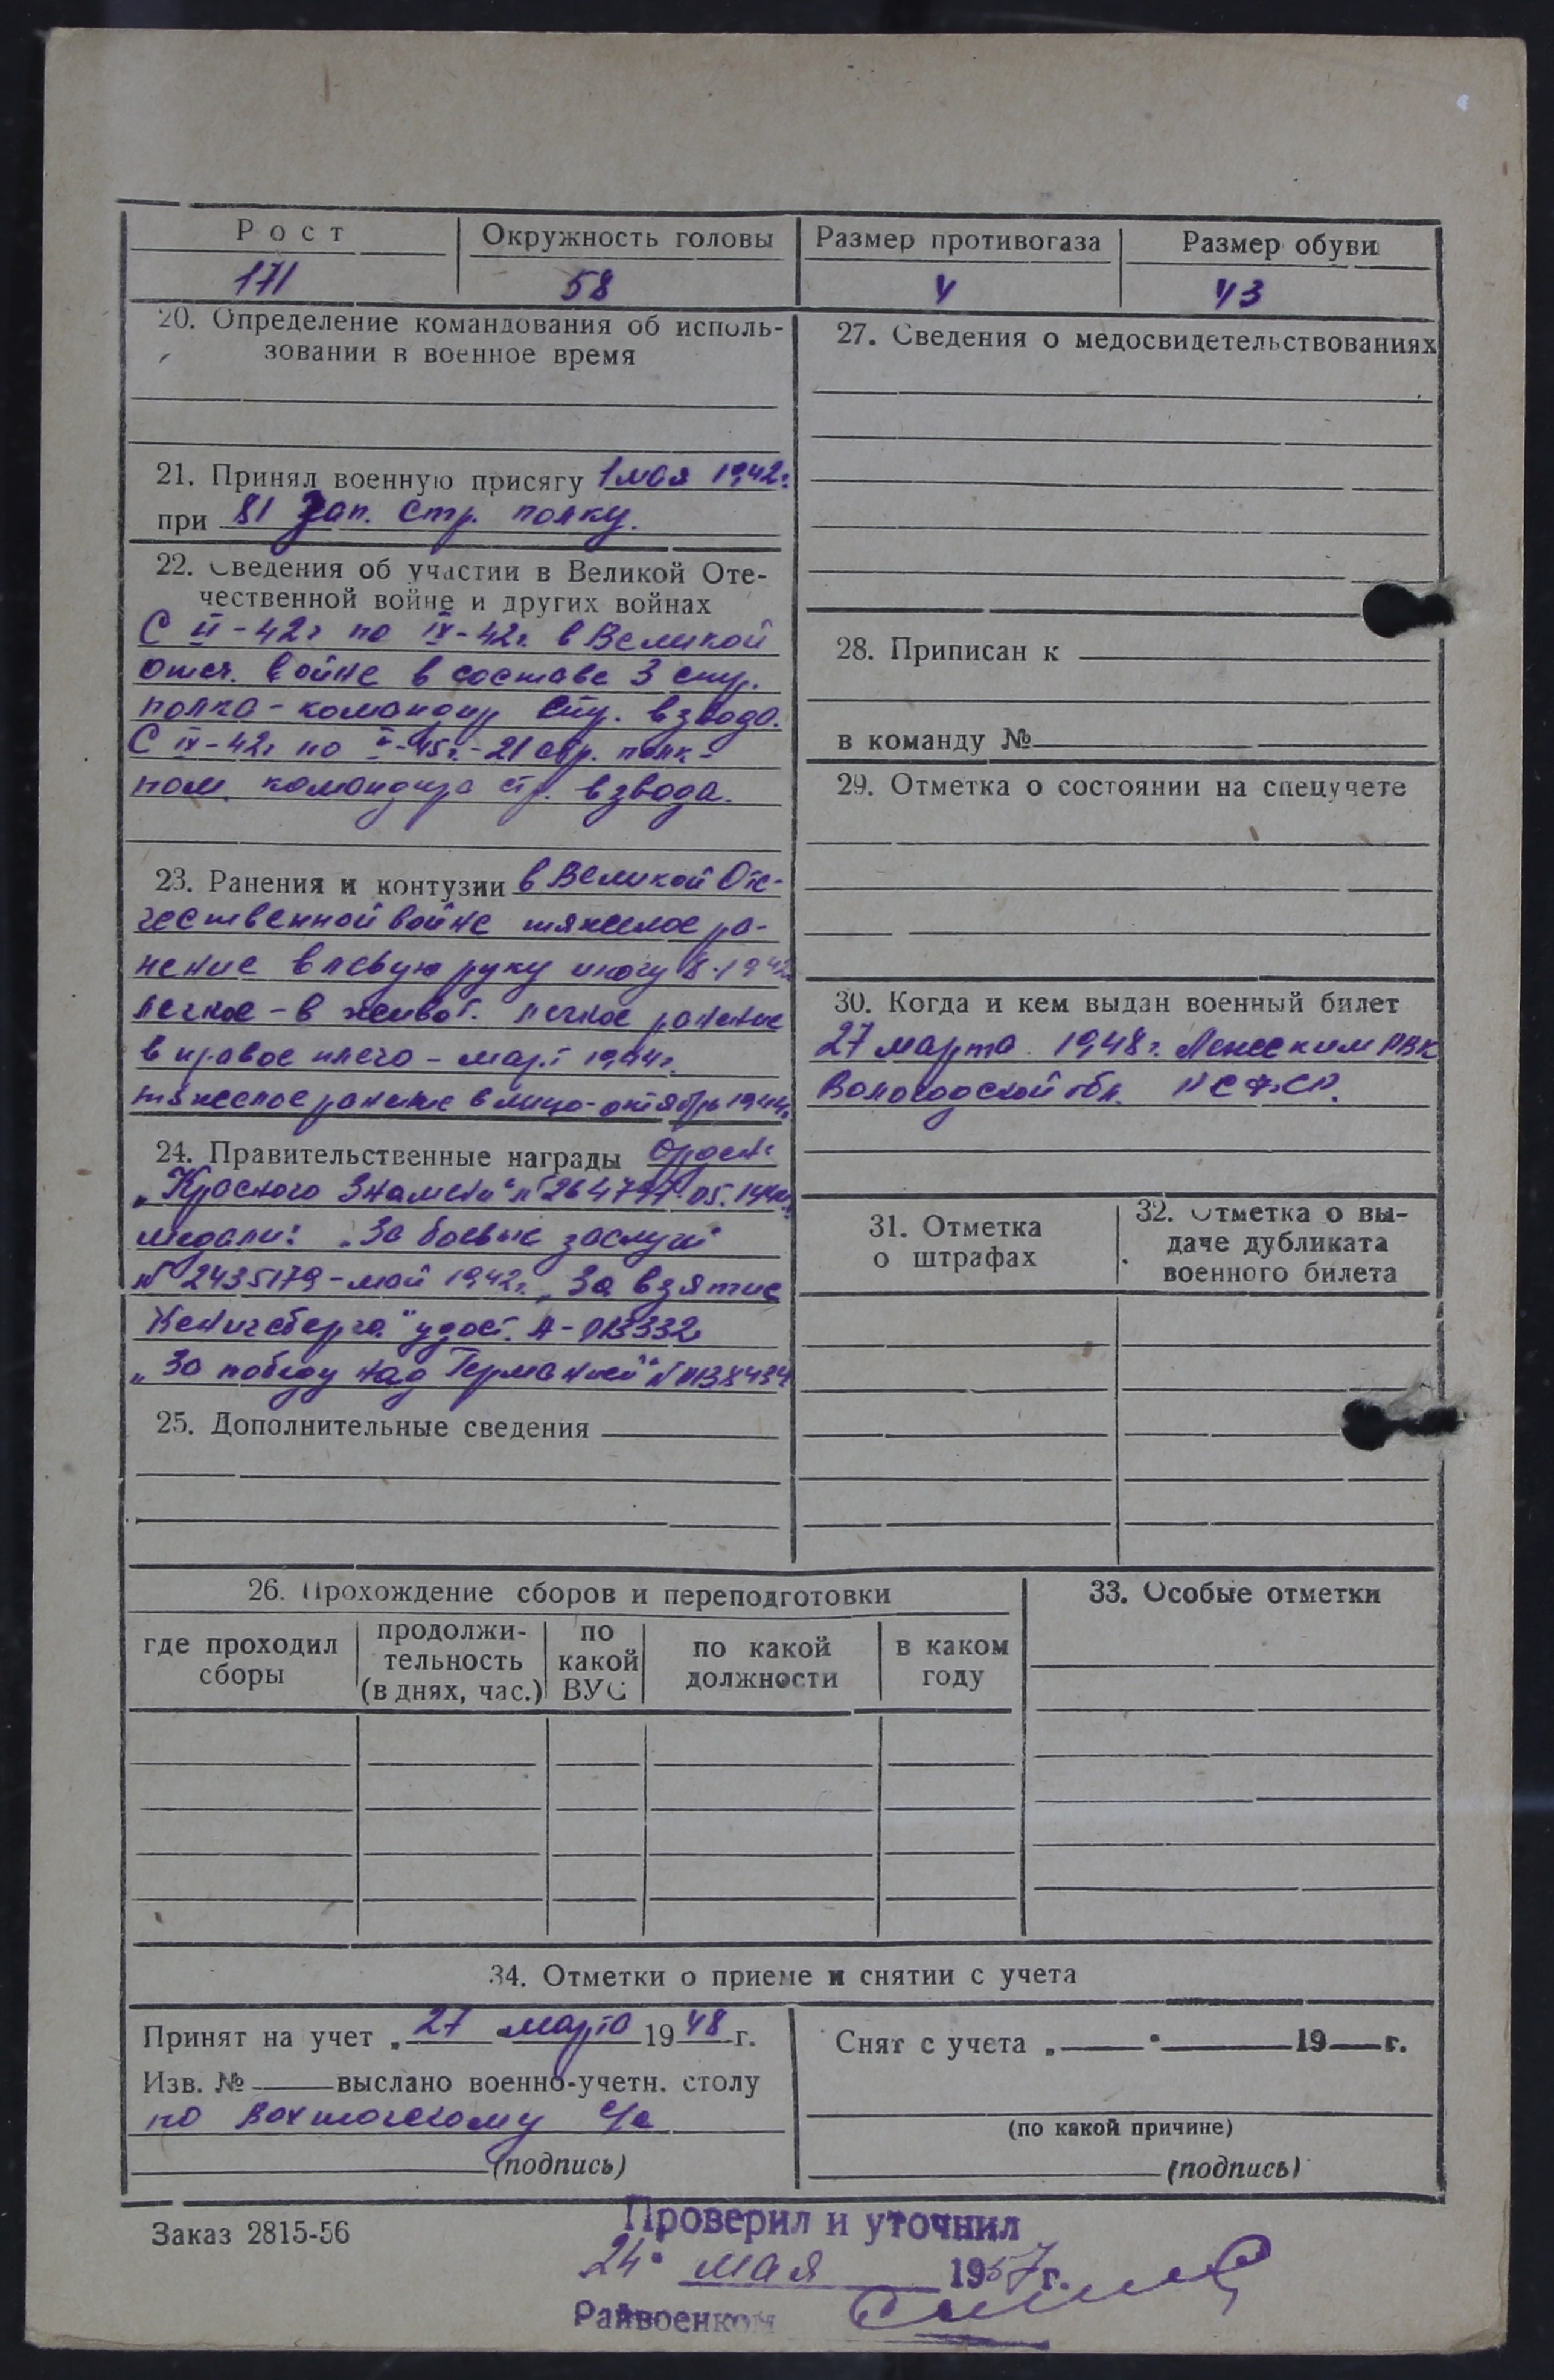 Рост
Окружность головы
Размер противогаза
Размер обуви
171
58
4
43
20. Определение командования об исполь-
зовании в военное время
21. Принял военную присягу 1 мая 1942г.
при 81 Зап. Стр. полку.
22. Сведения об участии в Великой Оте-
чественной войне и других войнах
С II-42г по IX-42г. в Великой
отеч. войне в составе 3 стр.
полка - командир стр. взвода.
С IX-42г по V-45г. - 21 стр. полк -
пом. командира стр. взвода.
23. Ранения и контузии в Великой Оте-
чественной войне тяжелое ра-
нение в левую руку и ногу
легкое - в живот. легкое ранение
в правое плечо - март 1944г.
тяжелое ранение в лицо - октябрь 1944г.
24. Правительственные награды Орден
„Красного Знамени" №
медали: „За боевые заслуги"
№ 2435179 - май 1942г. „За взятие
Кенигсберга" удост. А-013332
„За победу над Германией" № 0138434
25. Дополнительные сведения
26. Прохождение сборов и переподготовки
где проходил
сборы
продолжи-
тельность
(в днях, час.)
по
какой
ВУС
по какой
должности
в каком
году
27. Сведения о медосвидетельствованиях
28. Приписан к
в команду №
29. Отметка о состоянии на спецучете
30. Когда и кем выдан военный билет
27 марта 1948г. ким РВК
Вологодской обл. РСФСР.
31. Отметка
о штрафах
32. Отметка о вы-
даче дубликата
военного билета
33. Особые отметки
34. Отметки о приеме и снятии с учета
Принят на учет „27" марта 1948 г.
Изв. № выслано военно-учетн. столу
по Вохтожскому с/с
(подпись)
Снят с учета „ " 19 г.
(по какой причине)
(подпись)
Заказ 2815-56
Проверил и уточнил
24" мая 1957 г.
Райвоенком